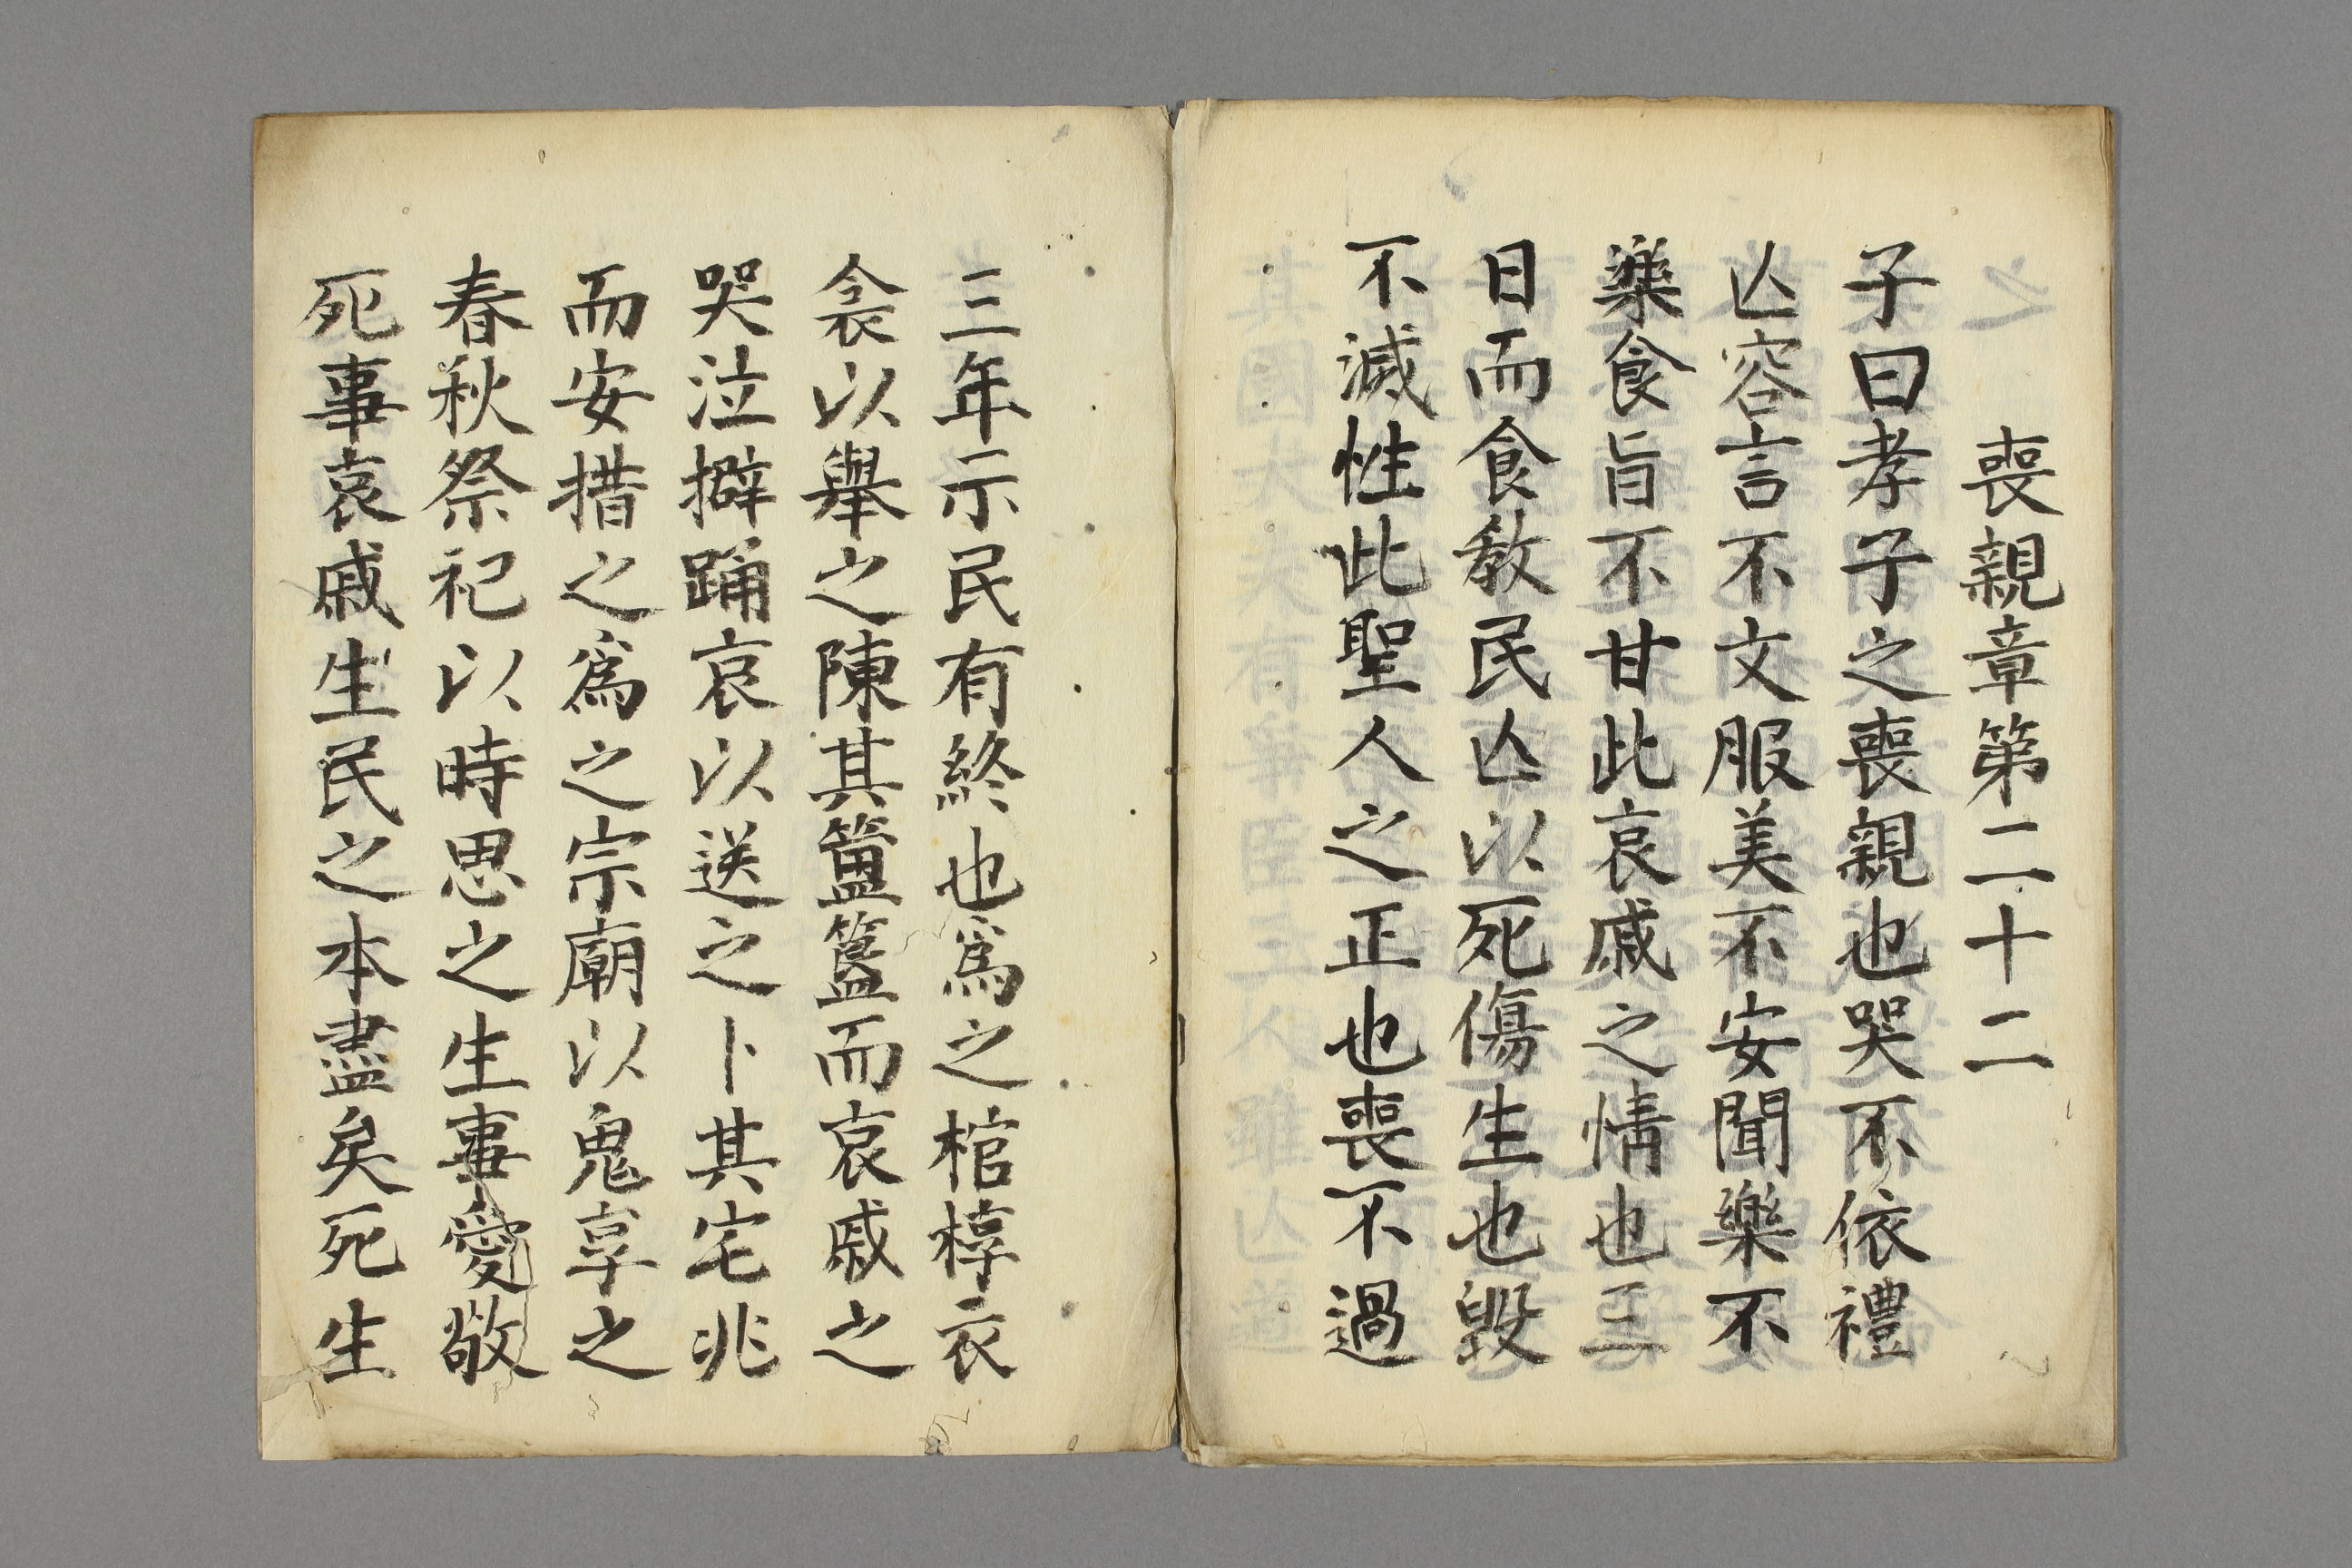 喪親章第二十二
子曰孝子之喪親也哭不依禮
亾容言不文服美不安聞樂不
樂食旨不甘此哀戚之情也三
日而食教民亾以死傷生也毀
不滅性此聖人之正也喪不過
三年示民有終也爲之棺椁衣
衾以舉之陳其簠簋而哀戚之
哭泣擗踊哀以送之卜其宅兆
而安措之爲之宗廟以鬼享之
春秋祭祀以時思之生事愛敬
死事哀戚生民之本盡矣死生